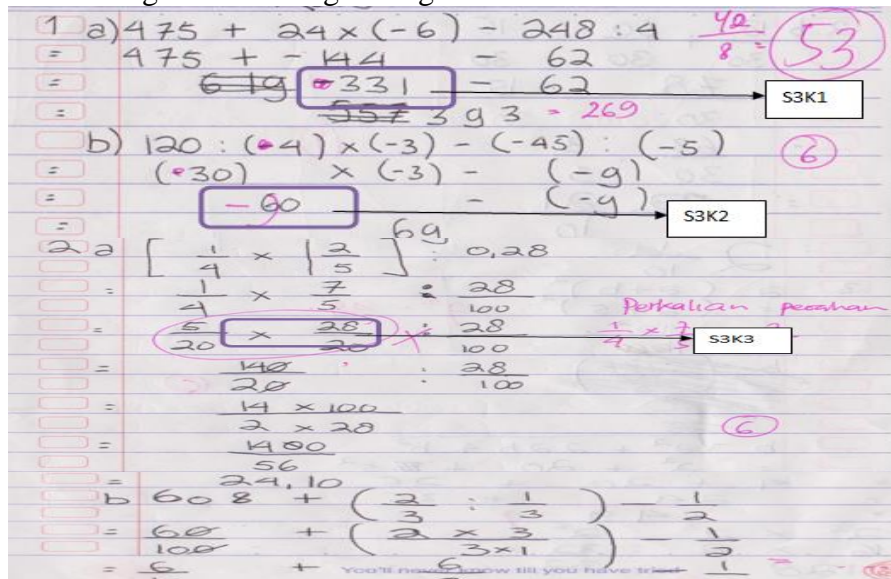 1 a) 475 + 24 × (-6) - 248 : 4 42/8 = 53
= 475 + - 144 - 62
= 619 -331 - 62 S3K1
= 557 393 = 269
b) 120 : (-4) × (-3) - (-45) : (-5) 6
= (-30) × (-3) - (-9)
= -90 - (-9) S3K2
= 69
2 a [ 1/4 × 1 2/5 ] : 0,28
= 1/4 × 7/5 : 28/100 Perkalian pecahan
= 5/20 × 28/20 : 28/100 1/4 × 7/5 S3K3
= 140/20 : 28/100
= 14 × 100 / 2 × 28 6
= 1400/56
= 24,10
b 60 8 + ( 2/3 : 1/3 ) - 1/2
= 60/100 + ( 2 × 3 / 3×1 ) - 1/2
= 6 + 6 1 =
You'll never know till you have tried